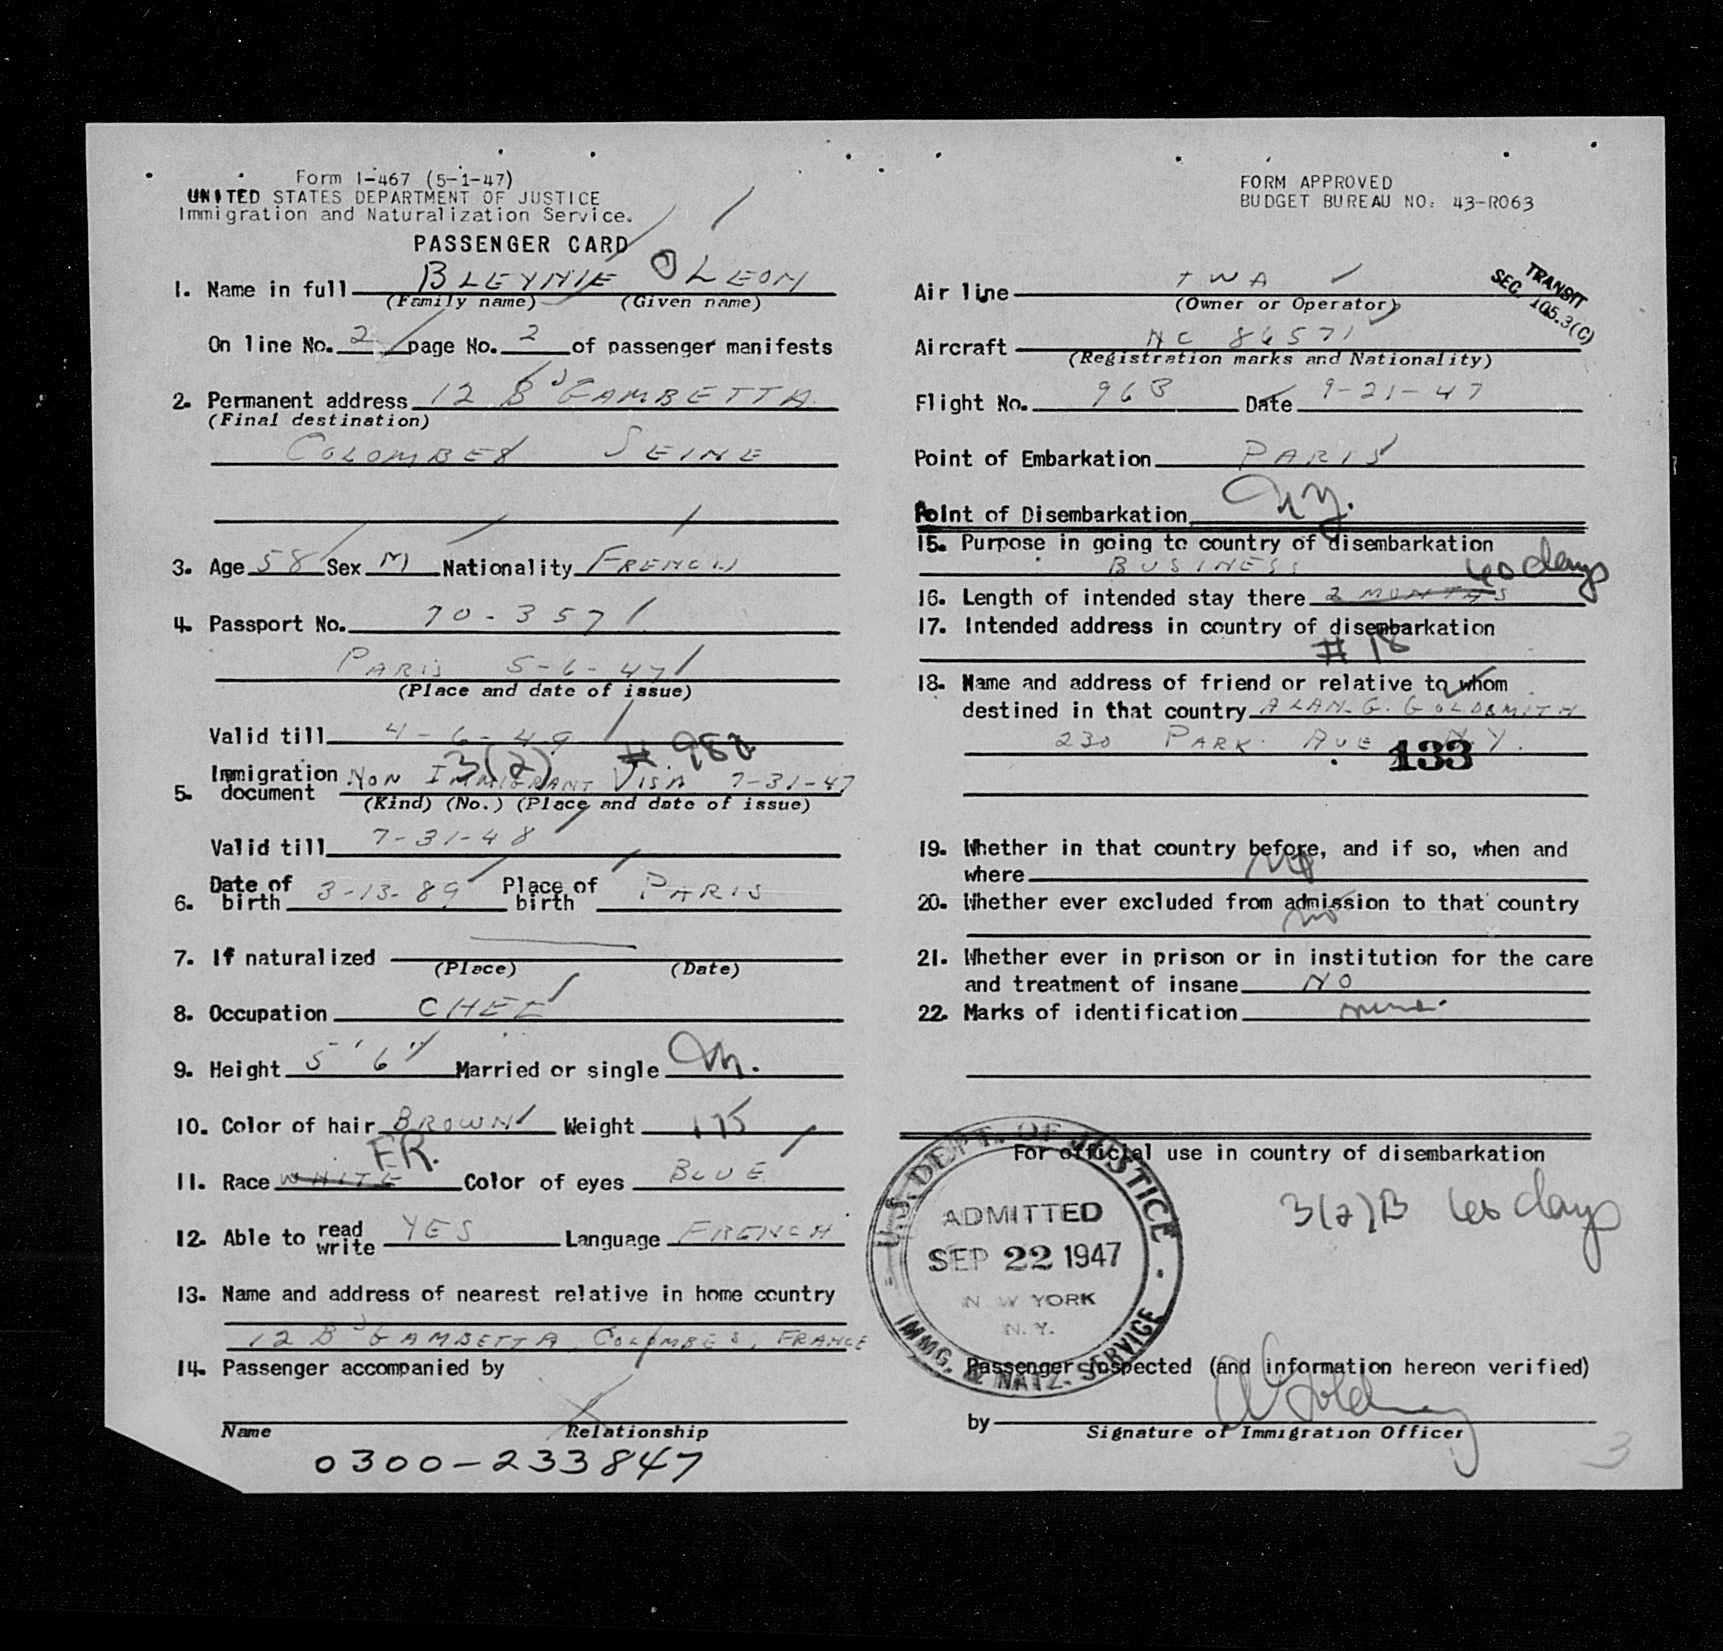 Form I-467 (5-1-47)
UNITED STATES DEPARTMENT OF JUSTICE
Immigration and Naturalization Service.
PASSENGER CARD
1. Name in full BLEYNIE O LEON
(Family name) (Given name)
On line No. 2 page No. 2 of passenger manifests
2. Permanent address 12 Bd GAMBETTA
(Final destination)
COLOMBES SEINE
3. Age 58 Sex M Nationality FRENCH
4. Passport No. 70-3571
PARIS 5-6-47
(Place and date of issue)
Valid till 4-6-49
3(2) # 982
5. Immigration document NON IMMIGRANT VISA 7-31-47
(Kind) (No.) (Place and date of issue)
Valid till 7-31-48
6. Date of birth 3-13-89 Place of birth PARIS
7. If naturalized
(Place) (Date)
8. Occupation CHEF
9. Height 5' 6" Married or single M.
10. Color of hair BROWN Weight 175
FR.
11. Race WHITE Color of eyes BLUE
12. Able to read write YES Language FRENCH
13. Name and address of nearest relative in home country
12 Bd GAMBETTA, COLOMBES, FRANCE
14. Passenger accompanied by
Name Relationship
0300-233847
FORM APPROVED
BUDGET BUREAU NO. 43-R063
TRANSIT
SEC. 105.3(C)
Air line TWA
(Owner or Operator)
Aircraft NC 86571
(Registration marks and Nationality)
Flight No. 963 Date 9-21-47
Point of Embarkation PARIS
Point of Disembarkation N.Y.
15. Purpose in going to country of disembarkation
BUSINESS
60 days
16. Length of intended stay there 2 MONTHS
17. Intended address in country of disembarkation
# 18
18. Name and address of friend or relative to whom
destined in that country ALAN. G. GOLDSMITH
230 PARK AVE N.Y.
133
19. Whether in that country before, and if so, when and
where No
20. Whether ever excluded from admission to that country
no
21. Whether ever in prison or in institution for the care
and treatment of insane NO
22. Marks of identification none
For official use in country of disembarkation
3(2)B 60 days
U.S. DEPT. OF JUSTICE
ADMITTED
SEP 22 1947
NEW YORK
N.Y.
IMMG. & NATZ. SERVICE
Passenger inspected (and information hereon verified)
by
Signature of Immigration Officer
3